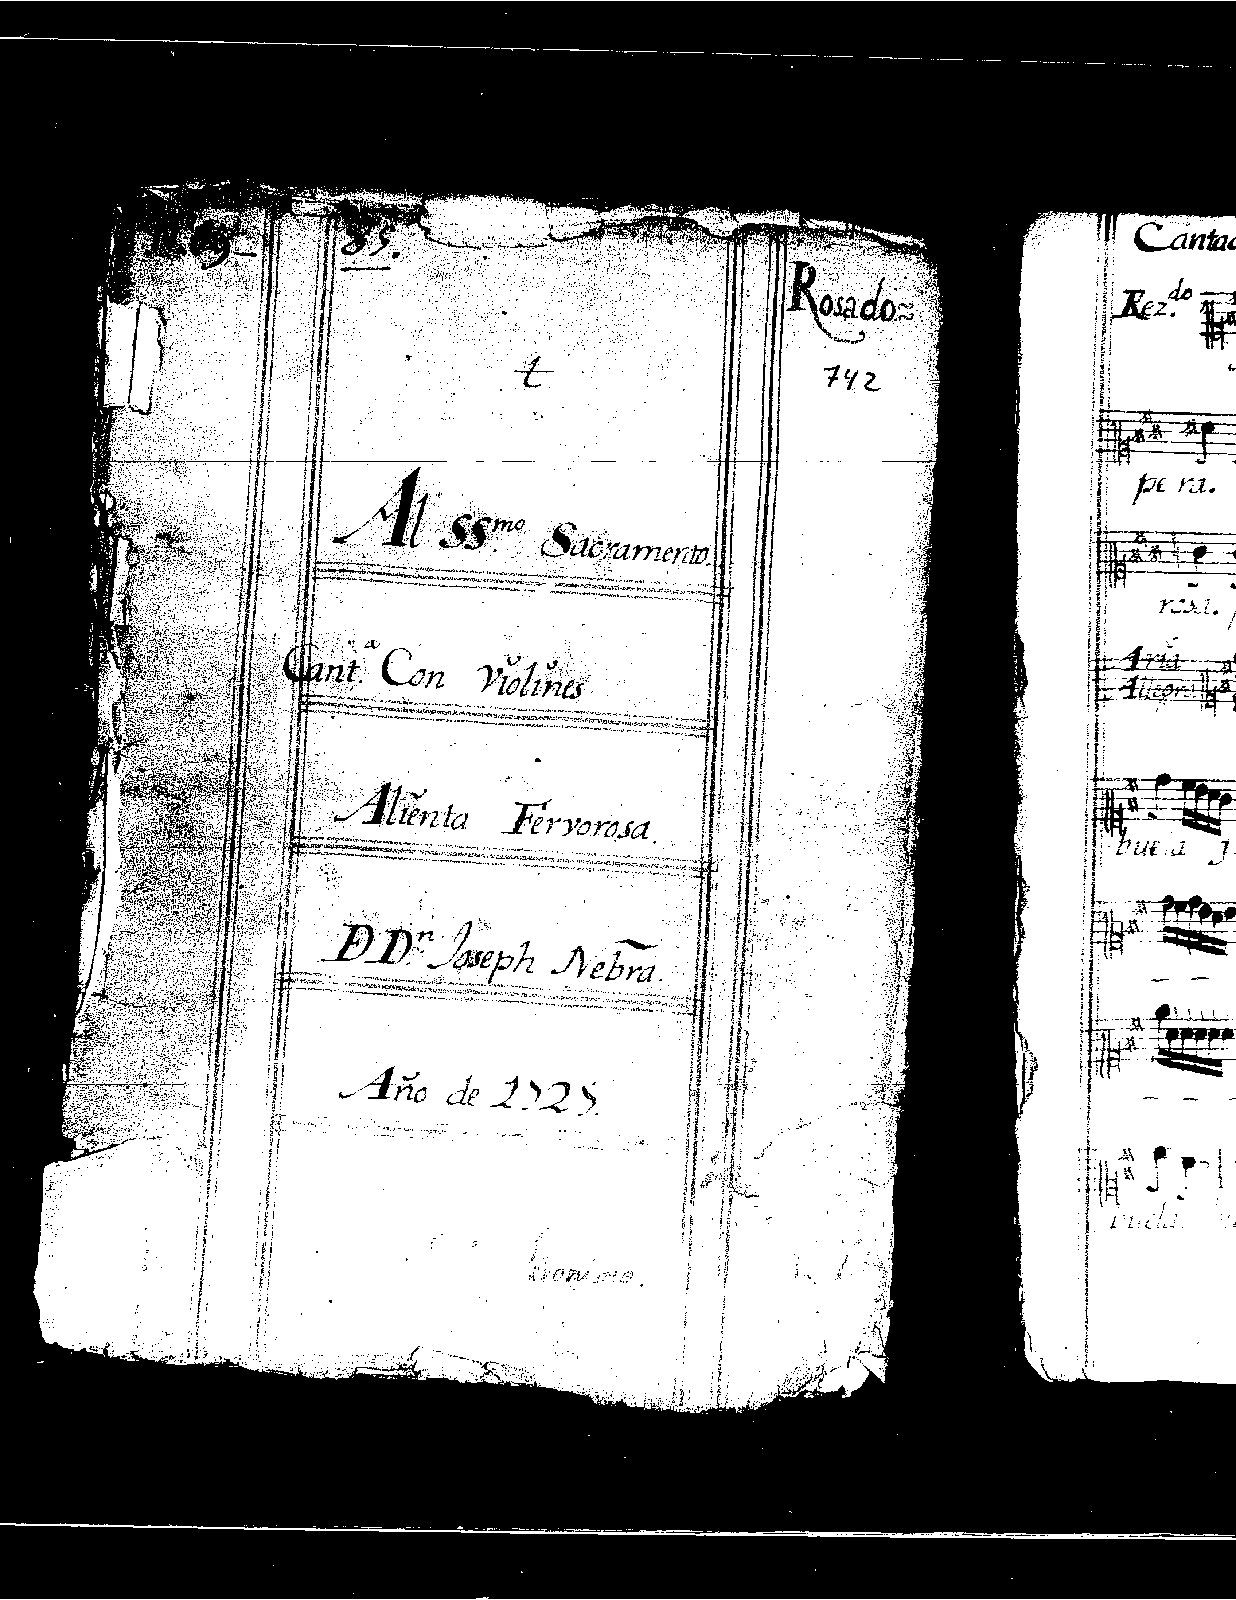 85.
Rosado
742
t
Al SS.mo Sacramento.
Cant.a Con Violines
Alienta Fervorosa.
D Dn. Joseph Nebra.
Año de 1725.
Cantad
Rez.do
pe ra.
rosa.
Aria
Allegro
buela
buela.